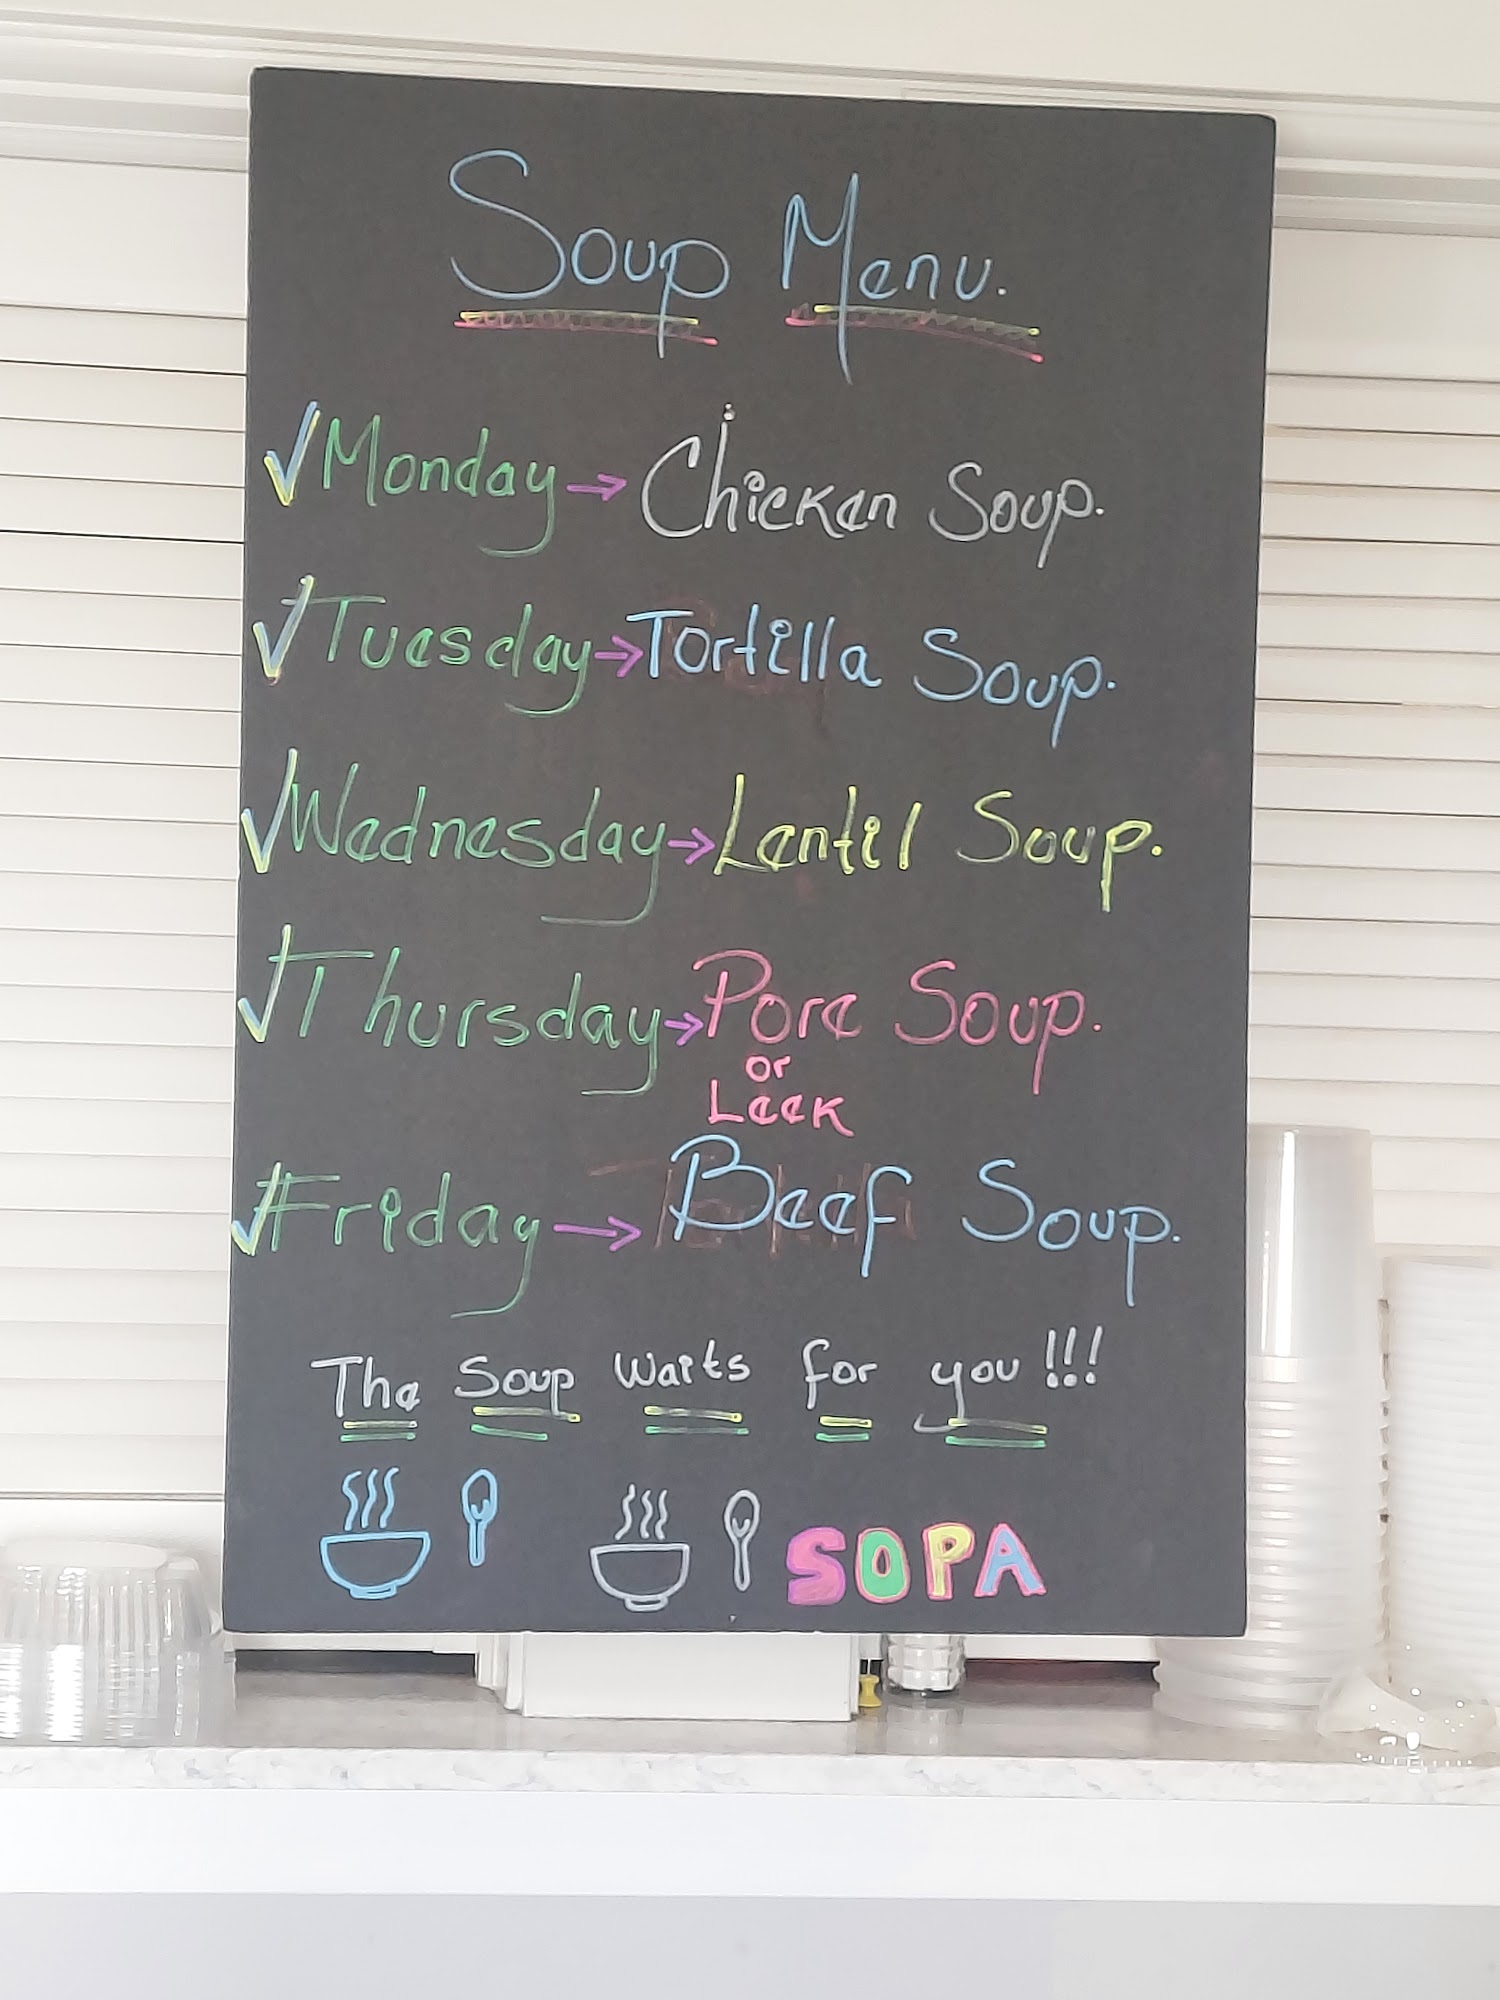 Soup Menu.
Monday → Chicken Soup.
Tuesday → Tortilla Soup.
Wednesday → Lentil Soup.
Thursday → Pore Soup.
or
Leek
Friday → Beef Soup.
The Soup waits for you!!!
SOPA